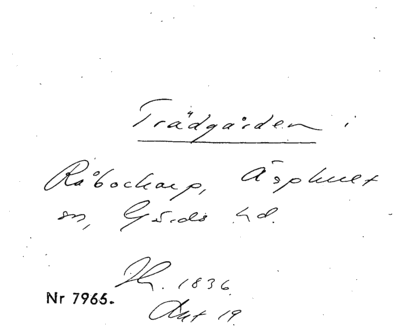 Trädgården i
Råbockarp, Äsphult
sn, Gärds hd.
1836.
Nr 7965.
Akt 19